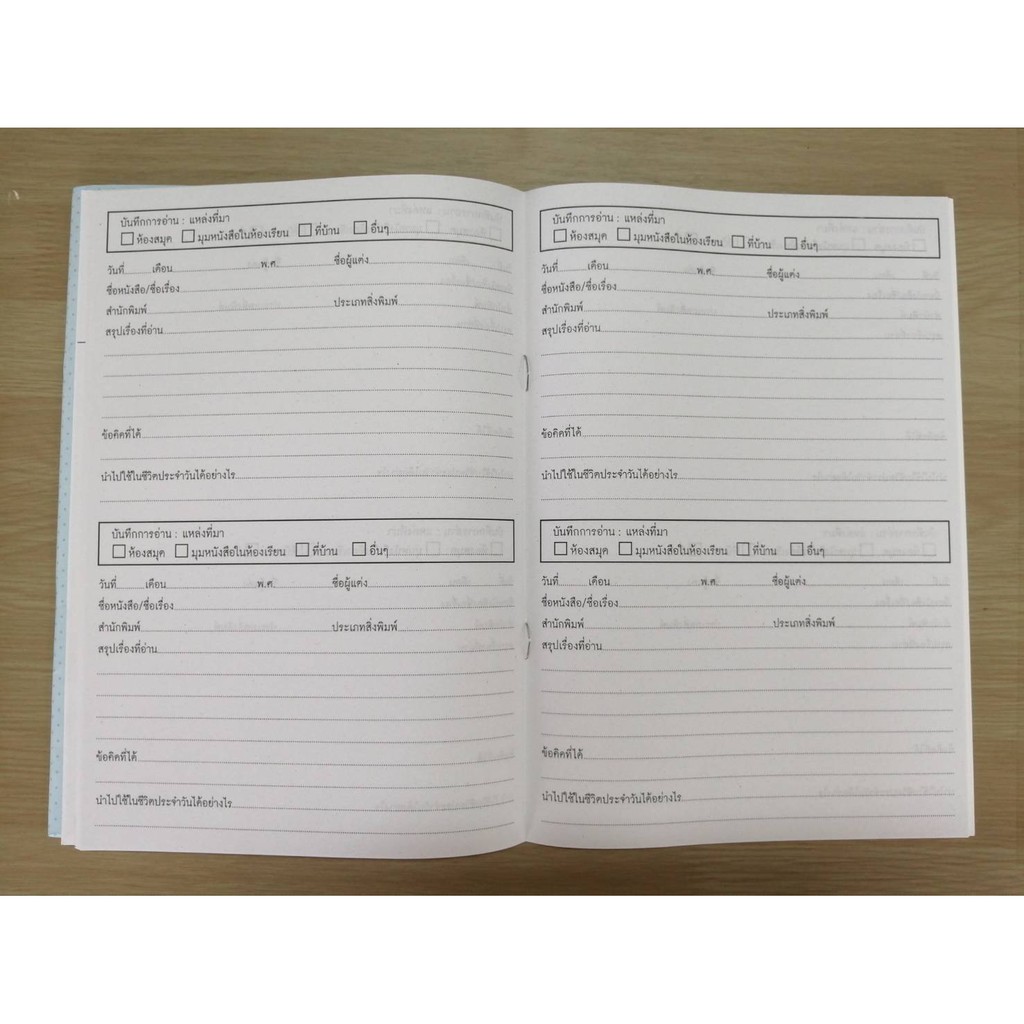 บันทึกการอ่าน : แหล่งที่มา
ห้องสมุด มุมหนังสือในห้องเรียน ที่บ้าน อื่นๆ
วันที่ เดือน พ.ศ. ชื่อผู้แต่ง
ชื่อหนังสือ/ชื่อเรื่อง
สำนักพิมพ์ ประเภทสิ่งพิมพ์
สรุปเรื่องที่อ่าน
ข้อคิดที่ได้
นำไปใช้ในชีวิตประจำวันได้อย่างไร
บันทึกการอ่าน : แหล่งที่มา
ห้องสมุด มุมหนังสือในห้องเรียน ที่บ้าน อื่นๆ
วันที่ เดือน พ.ศ. ชื่อผู้แต่ง
ชื่อหนังสือ/ชื่อเรื่อง
สำนักพิมพ์ ประเภทสิ่งพิมพ์
สรุปเรื่องที่อ่าน
ข้อคิดที่ได้
นำไปใช้ในชีวิตประจำวันได้อย่างไร
บันทึกการอ่าน : แหล่งที่มา
ห้องสมุด มุมหนังสือในห้องเรียน ที่บ้าน อื่นๆ
วันที่ เดือน พ.ศ. ชื่อผู้แต่ง
ชื่อหนังสือ/ชื่อเรื่อง
สำนักพิมพ์ ประเภทสิ่งพิมพ์
สรุปเรื่องที่อ่าน
ข้อคิดที่ได้
นำไปใช้ในชีวิตประจำวันได้อย่างไร
บันทึกการอ่าน : แหล่งที่มา
ห้องสมุด มุมหนังสือในห้องเรียน ที่บ้าน อื่นๆ
วันที่ เดือน พ.ศ. ชื่อผู้แต่ง
ชื่อหนังสือ/ชื่อเรื่อง
สำนักพิมพ์ ประเภทสิ่งพิมพ์
สรุปเรื่องที่อ่าน
ข้อคิดที่ได้
นำไปใช้ในชีวิตประจำวันได้อย่างไร